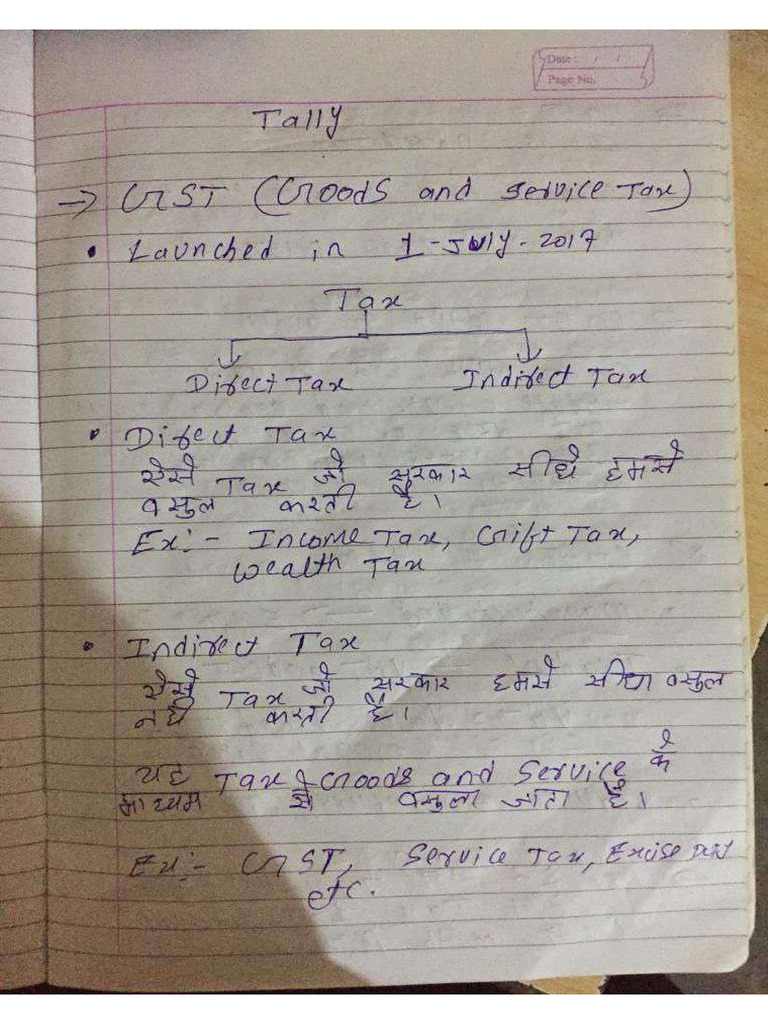 Date :
Page No.
Tally
→ GST (Goods and Service Tax)
• Launched in 1-July-2017
Tax
Direct Tax Indirect Tax
• Direct Tax
ऐसे Tax जो सरकार सीधे हमसे
वसुल करती है।
Ex:- Income Tax, Gift Tax,
Wealth Tax
• Indirect Tax
ऐसे Tax जो सरकार हमसे सीधा वसुल
नही करती है।
यह Tax Goods and Service के
माध्यम से वसुला जाता है।
Ex:- GST, Service Tax, Excise
etc.